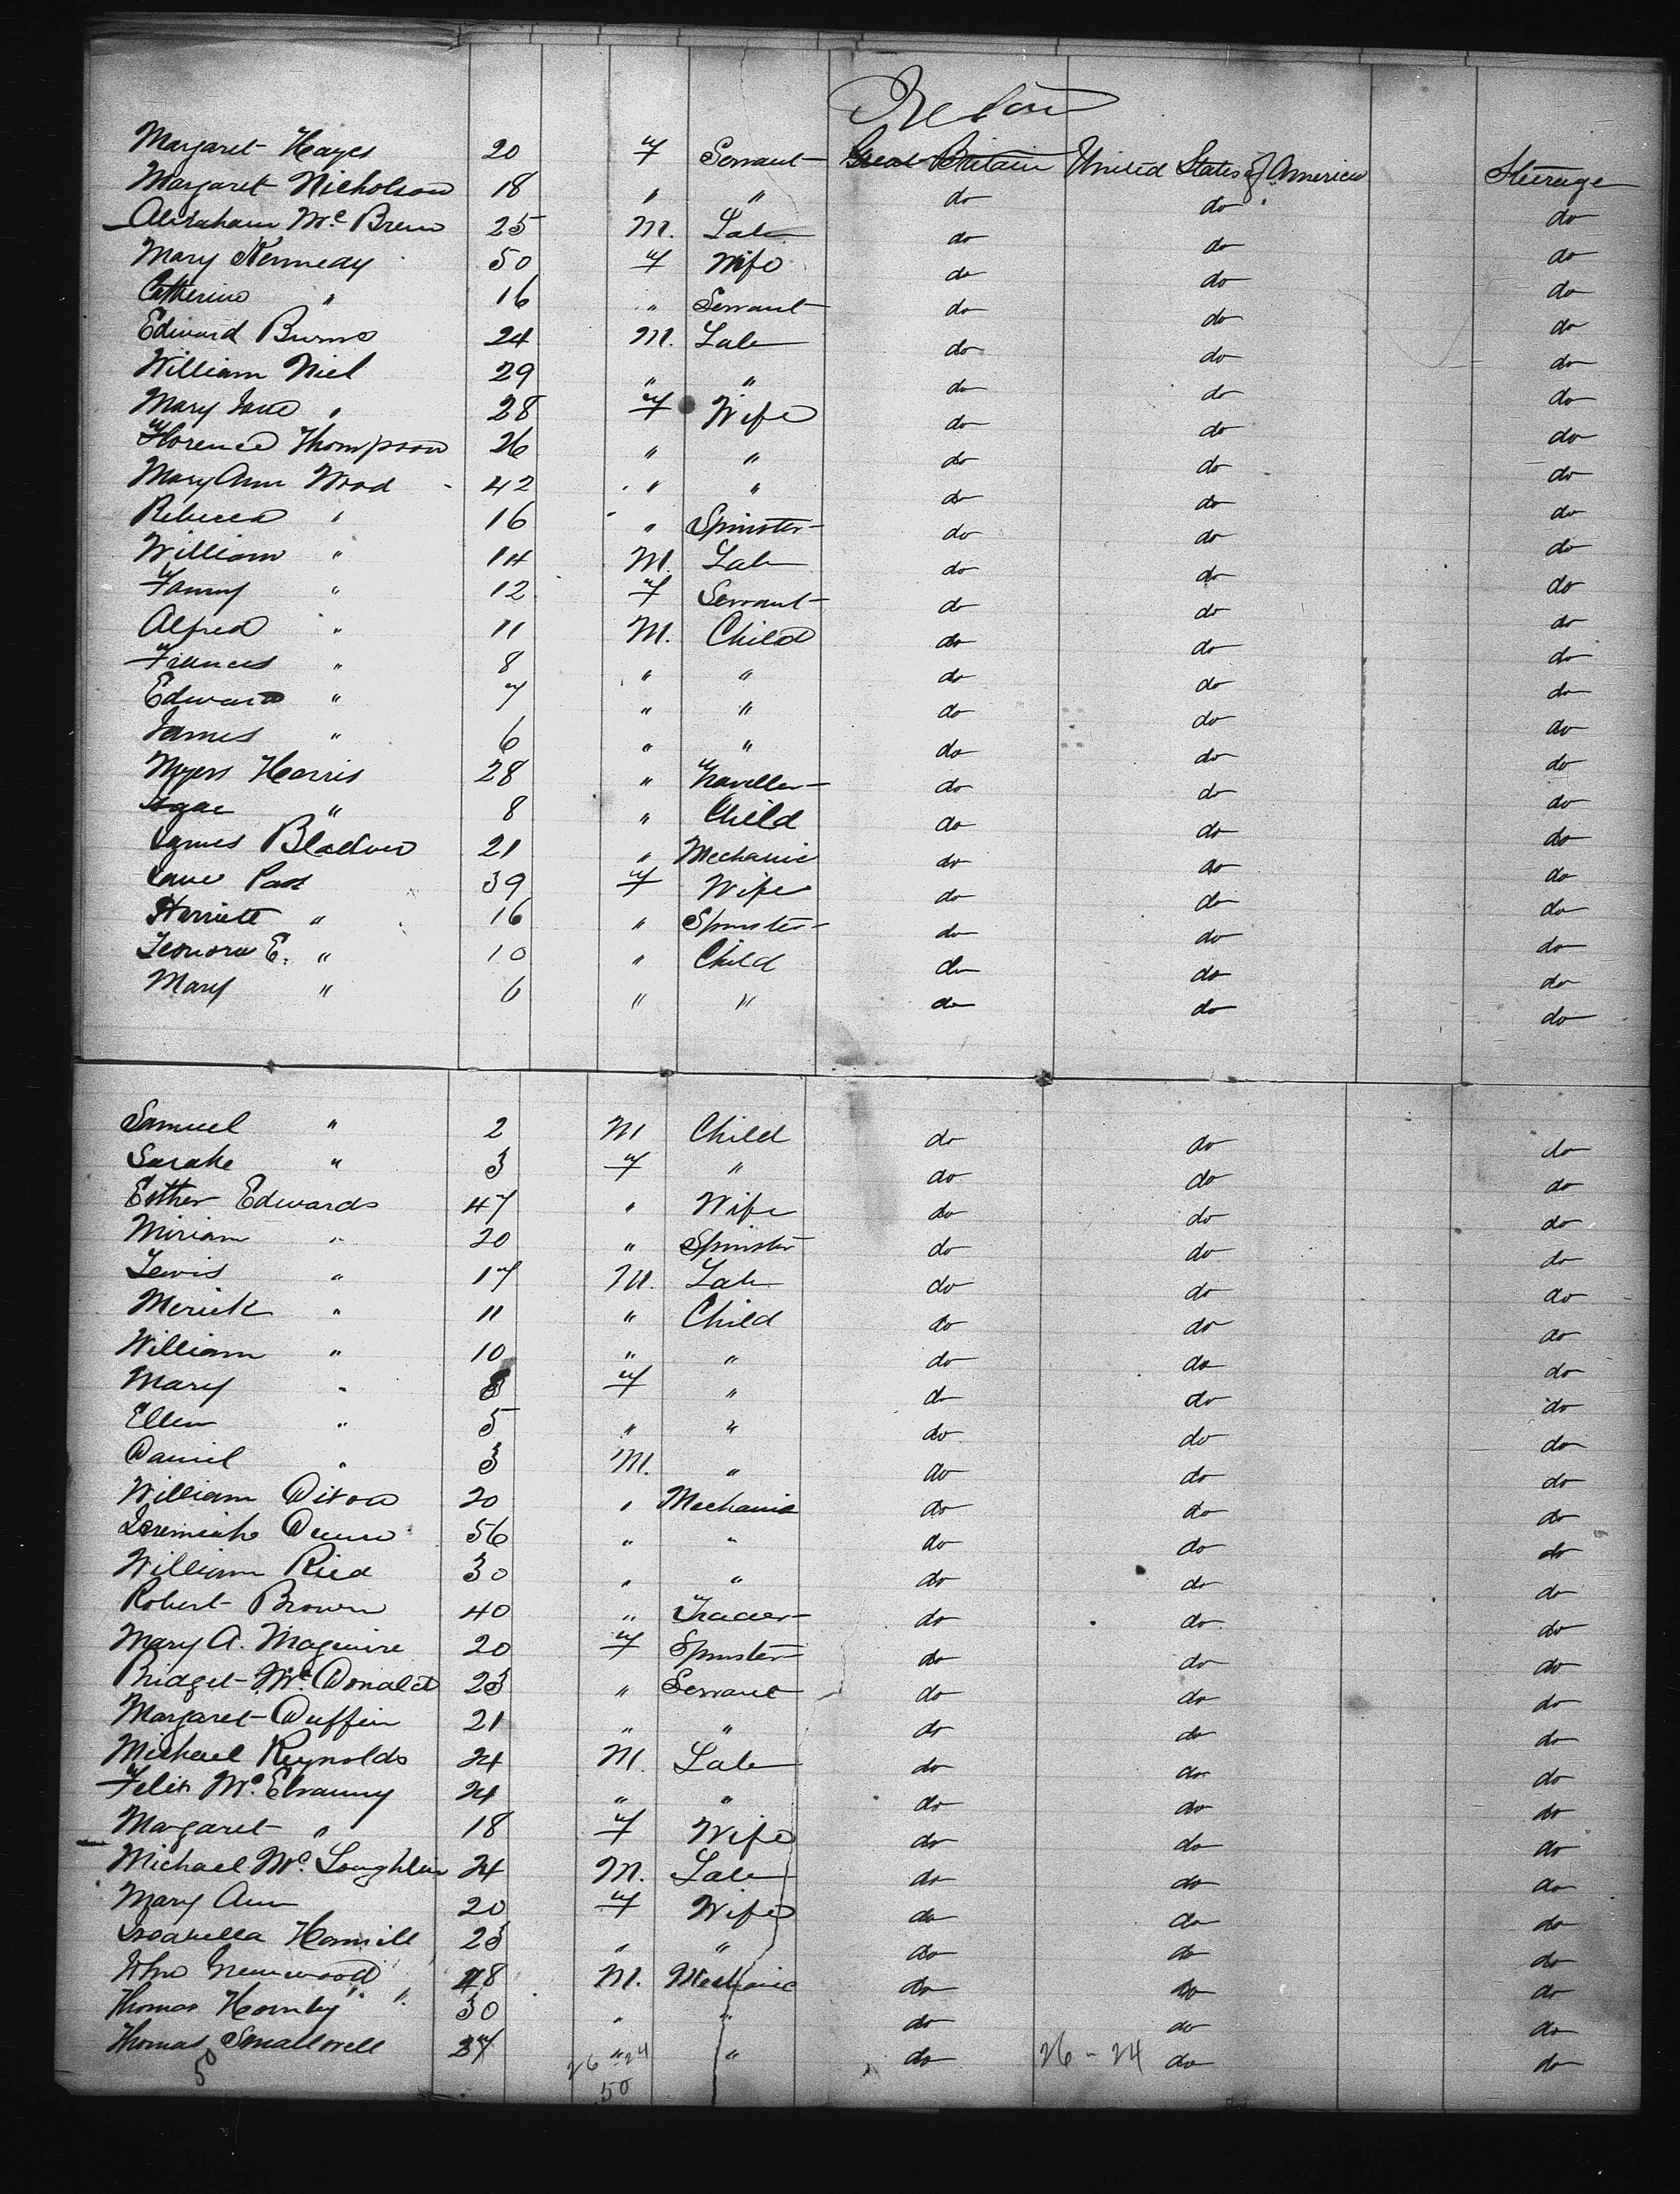 Margaret Hayes 20 F Servant Great Britain United States of America Steerage
Margaret Nicholson 18 " " do do do
Abraham Mc Breen 25 M. Lab do do do
Mary Kennedy 50 F Wife do do do
Catherine " 16 " Servant do do do
Edward Burns 24 M. Lab do do do
William Niel 29 " " do do do
Mary Jane " 28 F Wife do do do
Florence Thompson 26 " " do do do
Mary Ann Wood 42 " " do do do
Rebecca " 16 " Spinster do do do
William " 14 M. Lab do do do
Fanny " 12 F Servant do do do
Alfred " 11 M. Child do do do
Frances " 8 " " do do do
Edward " 7 " " do do do
James " 6 " " do do do
Myers Harris 28 " Traveller do do do
" 8 " Child do do do
James 21 " Mechanic do do do
Jane 39 F Wife do do do
Harriett " 16 " Spinster do do do
Leonora E. " 10 " Child do do do
Mary " 6 " " do do do
Samuel " 2 M Child do do do
Sarah " 3 F " do do do
Esther Edwards 47 " Wife do do do
Miriam " 20 " Spinster do do do
Lewis " 17 M. Lab do do do
Merick " 11 " Child do do do
William " 10 " " do do do
Mary " F " do do do
Ellen " 5 " " do do do
Daniel " 3 M. " do do do
William Dixon 20 " Mechanic do do do
Jeremiah Dunn 56 " " do do do
William Ried 30 " " do do do
Robert Brown 40 " Trader do do do
Mary A. Maguire 20 F Spinster do do do
Bridget Mc. Donald 23 " Servant do do do
Margaret Duffin 21 " " do do do
Michael Reynolds 24 M. Lab do do do
Felix Mc 24 " " do do do
Margaret " 18 F Wife do do do
Michael Mc Loughlin 24 M. Lab do do do
Mary Ann 20 F Wife do do do
Isabella Hamill 23 " " do do do
John Greenwood 28 M. Mechanic do do do
Thomas Hornby 30 " " do do do
Thomas Smallwell 27 " " do do do
50 26 24 26 - 24
50